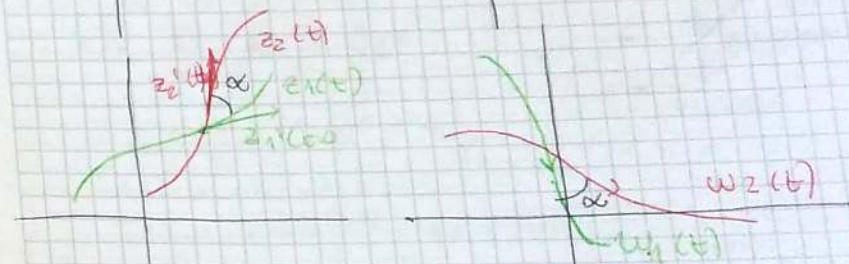 z₂(t)
z₂'(t)
α
z₁(t)
z₁'(t)
α
w₂(t)
w₁(t)